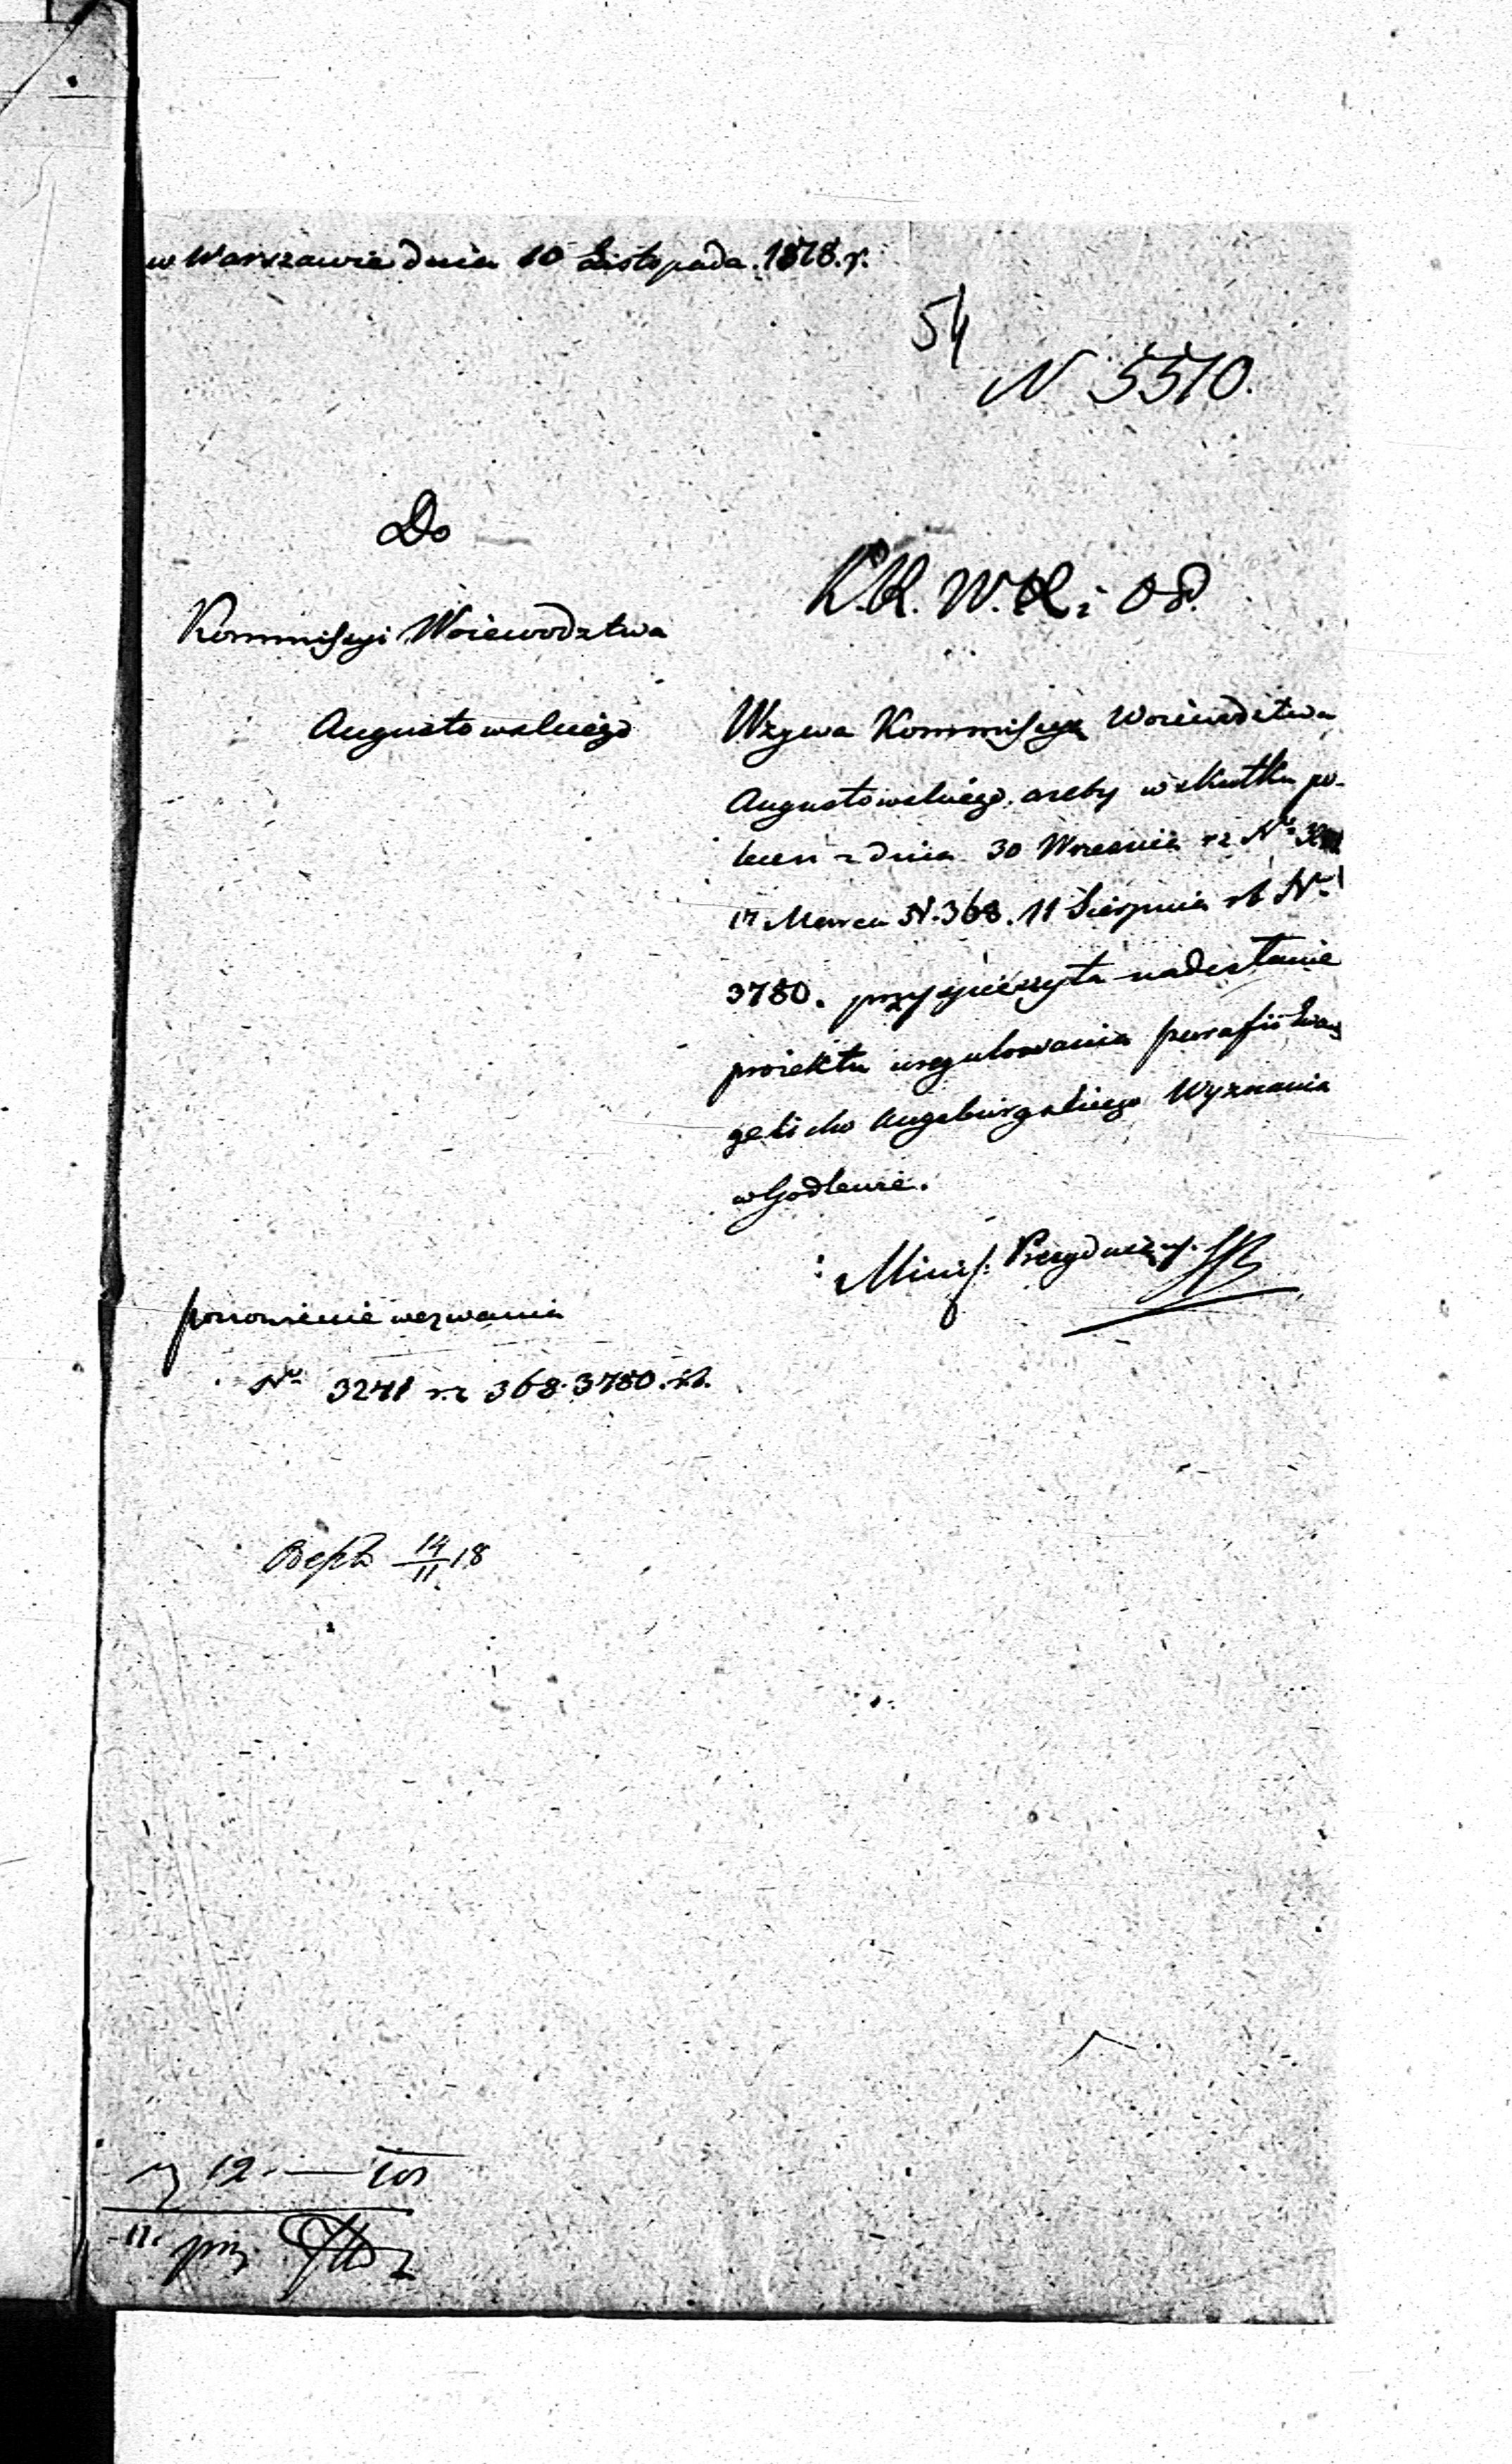 w Warszawie dnia 10 Listopada. 1818. r.
54
N 5510.
Do
Kommissyi Woiewodztwa
Augustowskiego
K.R.W.R. i O.P.
Wzywa Kommissya Woiewodztwa
Augustowskiego, ażeby w skutku po-
leceń z dnia 30 Wrzesnia rz Nº
17 Marca N. 368. 11 Sierpnia rb Nº
3780. przyspieszyła nadesłanie
proiektu uregulowania parafii Ewan
gelicko Augsburgskiego Wyznania
w Godlewie.
Minis. Prezyduiący.
ponowienie wezwania
Nº 3271 r.z 368. 3780. r.b.
14/11 18
12.
prz.